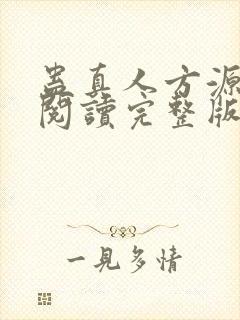 蛊真人方源
閱讀完整版
一見多情